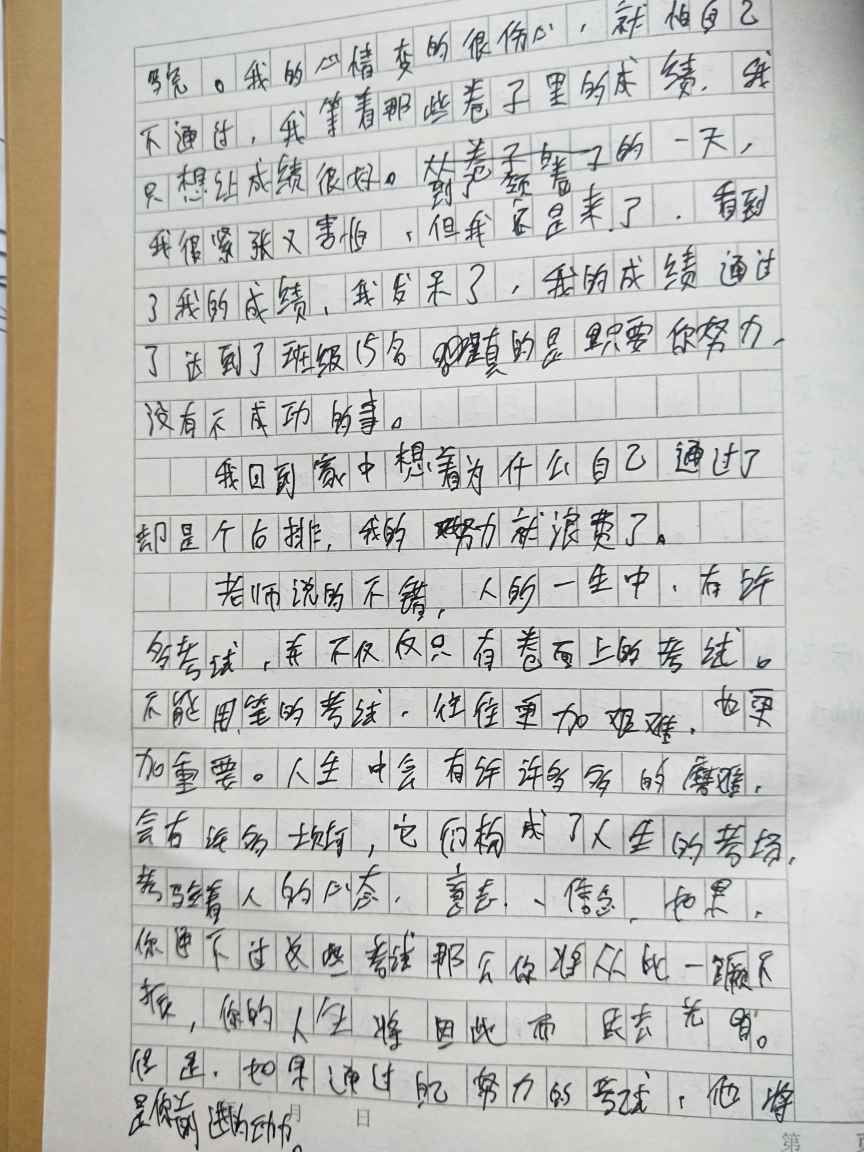 完。我的心情变的很伤心，就怕自己
不通过，我等着那些卷子里的成绩，我
只想让成绩很好。到了颁卷子的一天，
我很紧张又害怕，但我还是来了，看到
了我的成绩，我发呆了，我的成绩通过
了达到了班级15名 真的是只要你努力，
没有不成功的事。
我回到家中想着为什么自己通过了
却是个后排，我的努力就浪费了。
老师说的不错，人的一生中，有许
多考试，并不仅仅只有卷面上的考试。
不能用笔的考试，往往更加艰难，也更
加重要。人生中会有许许多多的磨难，
会有许多坎坷，它们构成了人生的考场，
考验着人的心态、意志、信念，如果，
你通不过这些考试那么你将从此一蹶不
振，你的人生将因此而失去光育。
但是，如果通过自己努力的考试，他将
是你前进的动力。
月 日
第 页